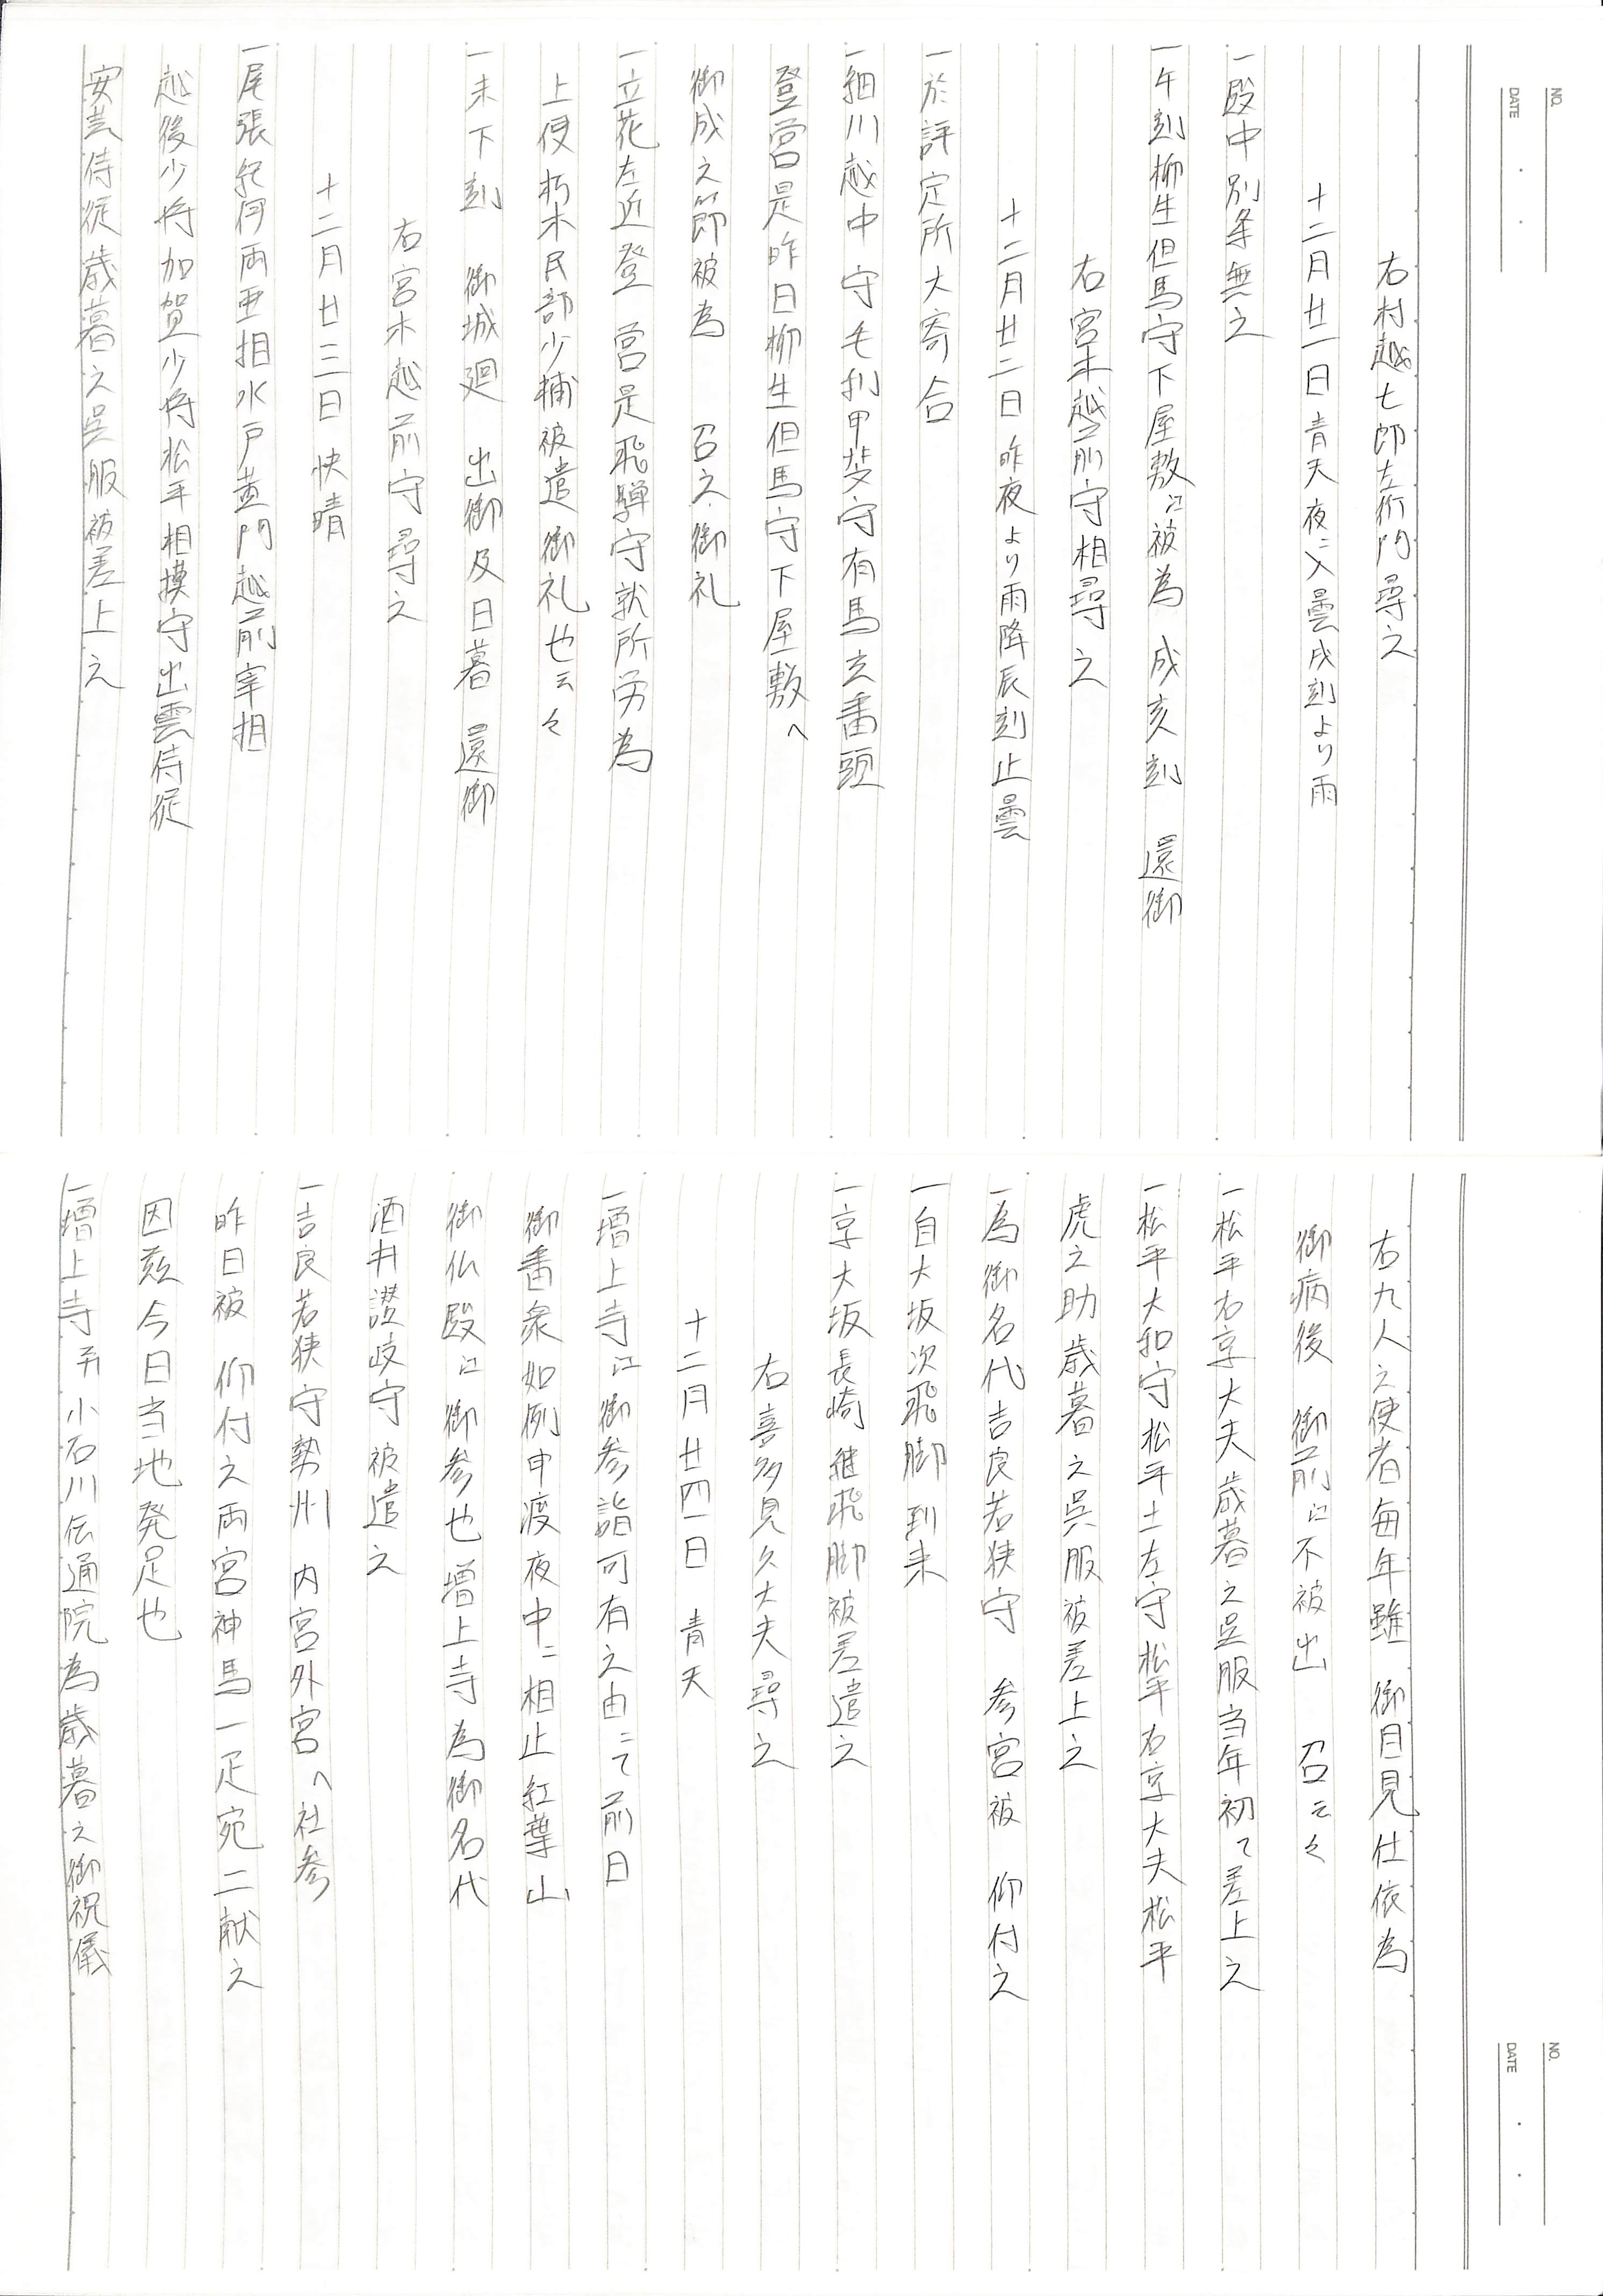 NO.
DATE
右村越七郎左衛門尋之
十二月廿一日 青天夜ニ入曇戌刻より雨
一殿中別条無之
一午刻柳生但馬守下屋敷江被為 成亥刻 還御
右宮木越前守相尋之
十二月廿二日 昨夜より雨降辰刻止曇
一於評定所大寄合
一細川越中守毛利甲斐守有馬玄番頭
登営是昨日柳生但馬守下屋敷へ
御成之節被為 召之御礼
一立花左近登 営是飛騨守就所労為
上使朽木民部少輔被遣御礼也云々
一未下刻 御城廻 出御及日暮 還御
右宮木越前守尋之
十二月廿三日 快晴
一尾張紀伊両亜相水戸黄門越前宰相
越後少将加賀少将松平相摸守出雲侍従
安芸侍従歳暮之呉服被差上之
NO.
DATE
右九人之使者毎年雖 御目見仕依為
御病後 御前江不被出 召云々
一松平右京大夫歳暮之呉服当年初て差上之
一松平大和守松平土左守松平右京大夫松平
虎之助歳暮之呉服被差上之
一為御名代吉良若狭守 参宮被 仰付之
一自大坂次飛脚到来
一京大坂長崎継飛脚被差遣之
右喜多見久大夫尋之
十二月廿四日 青天
一増上寺江御参詣可有之由ニて前日
御番衆如例申渡夜中ニ相止紅葉山
御仏殿江御参也増上寺為御名代
酒井讃岐守被遣之
一吉良若狭守勢州 内宮外宮へ社参
昨日被 仰付之両宮神馬一疋宛二献之
因茲今日当地発足也
一増上寺并小石川伝通院為歳暮之御祝儀